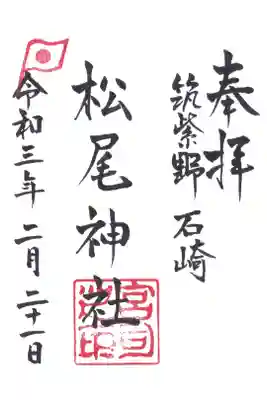 奉拝
筑紫野 石崎
松尾神社
令和三年 二月 二十一日